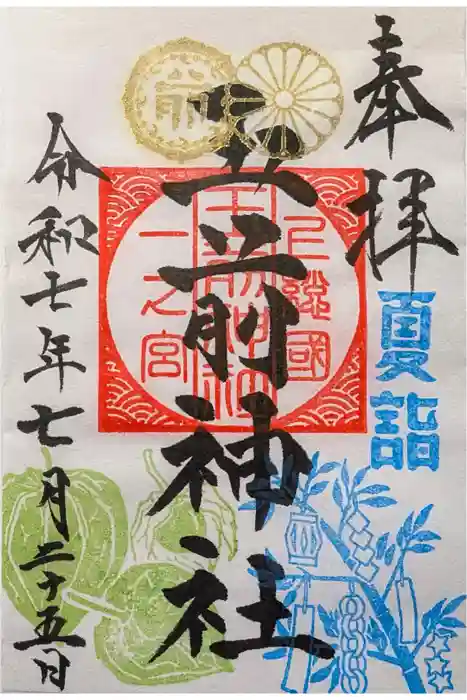 奉拝
夏詣
玉前神社
上總國
玉前神社
一之宮
令和七年七月二十五日